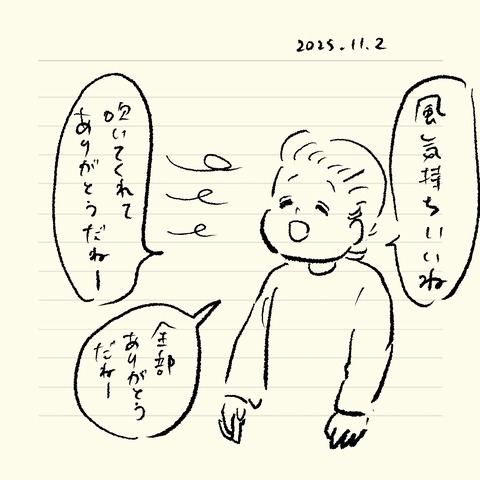 2025.11.2
風気持ちいいね
吹いてくれて
ありがとうだねー
全部
ありがとう
だねー